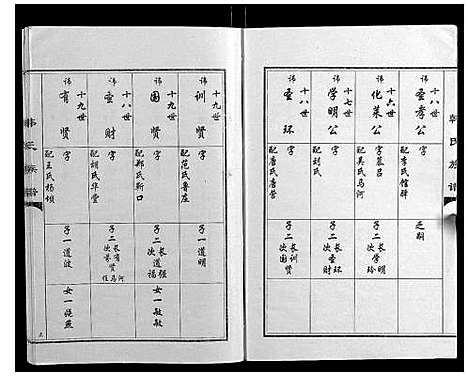 韩氏族谱
十八世
讳 圣孝公
字
配李氏馆驿
乏嗣
十六世
讳 化莱公
字慕吕
配吴氏马河
子二 长学明 次学玲
十七世
讳 学明公
字
配刘氏
子二 长圣环 次圣财
十八世
讳 圣环
字
配唐氏唐营
子二 长训贤 次国贤
十九世
讳 训贤
字
配范氏鲁庄
子一道明
十九世
讳 国贤
字
配郑氏靳口
子二 长道强 次道福
女一敏敏
十八世
讳 圣财
字
配胡氏华堂
子二 长有贤 次
十九世
讳 有贤
字
配王氏杨坝
子一道波
女一
韩氏族谱